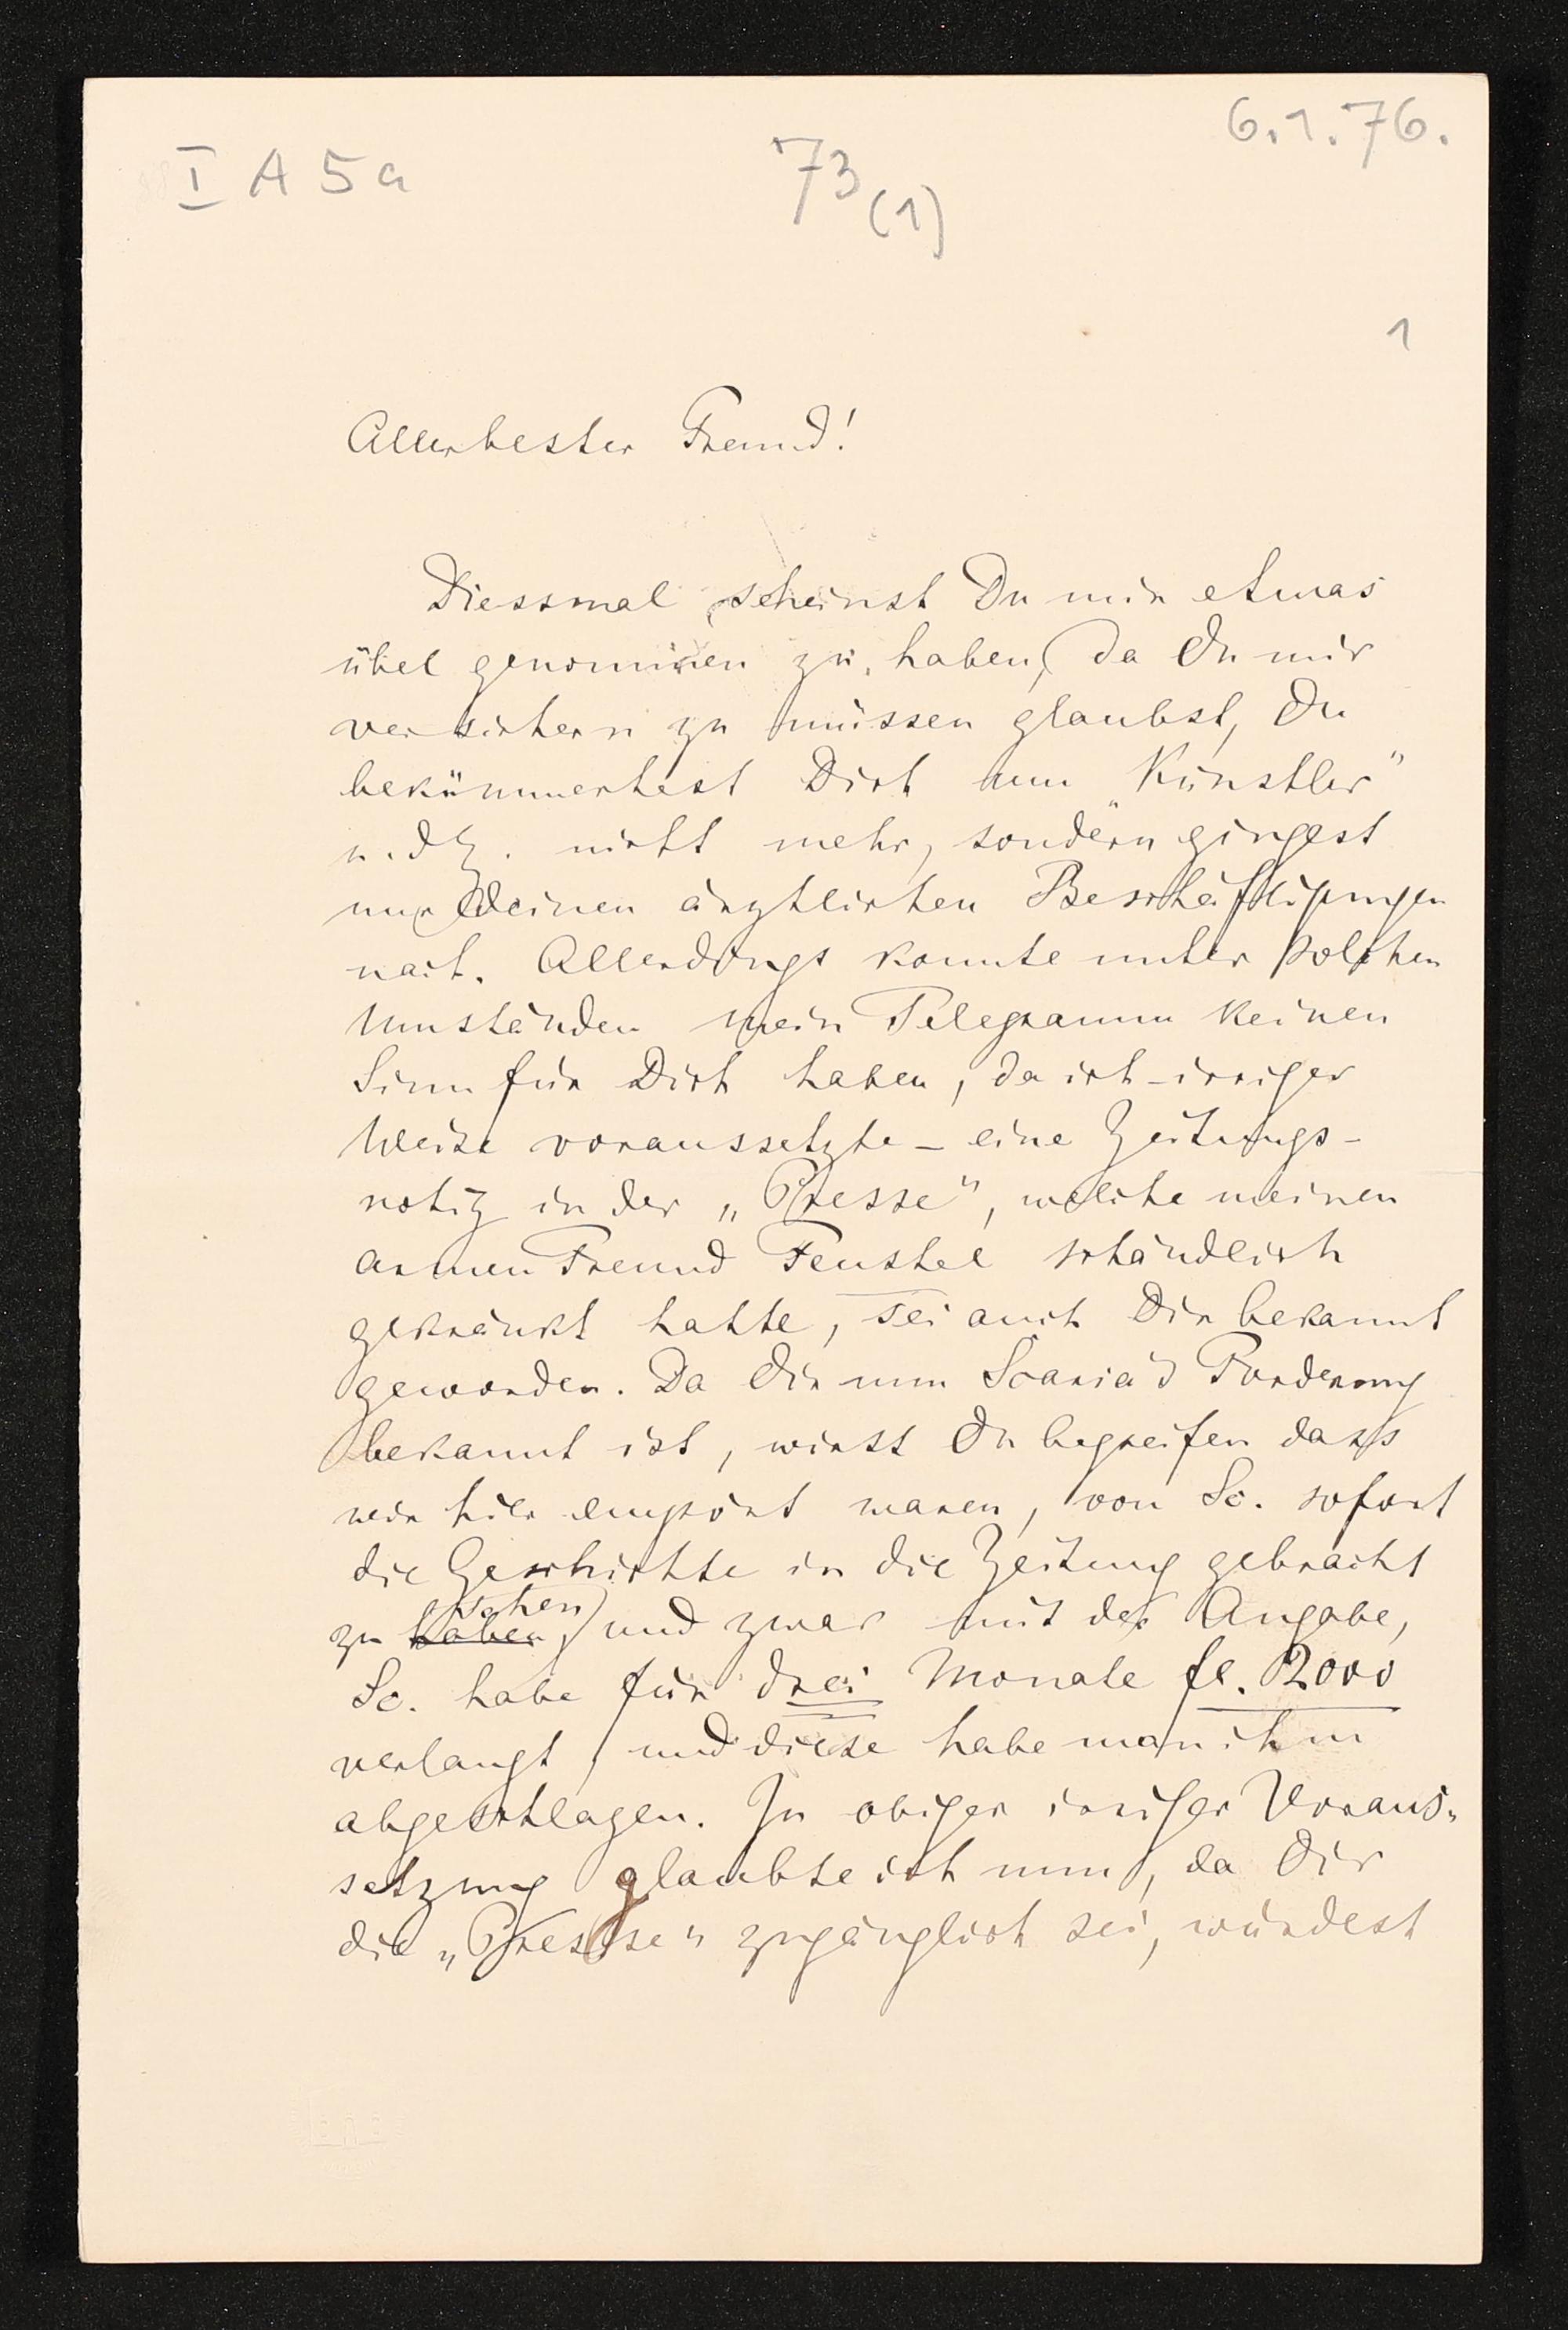 6.1.76.
I A 5a
73 (1)
1
Allerbester Freund!
Diessmal scheinst Du mir etwas
übel genommen zu haben, da Du mir
versichern zu müssen glaubst, Du
bekümmertest Dich um „Künstler"
u. dg. nicht mehr, sondern gingest
nur Deinen ärztlichen Beschäftigungen
nach. Allerdings konnte unter solchen
Umständen mein Telegramm keinen
Sinn für Dich haben, da ich – irriger
Weise voraussetzte – eine Zeitungs-
notiz in der „Presse", welche meinen
armen Freund Feustel schändlich
gekränkt hatte, sei auch Dir bekannt
geworden. Da Dir nun Scaria's Forderung
bekannt ist, wirst Du begreifen dass
wir hier empört waren, von Sc. sofort
die Geschichte in die Zeitung gebracht
zu haben sehen, und zwar mit der Angabe,
Sc. habe für drei Monate fl. 2000
verlangt, und diese habe man ihm
abgeschlagen. In obiger irriger Voraus-
setzung glaubte ich nun, da Dir
die „Presse" zugänglich sei, würdest